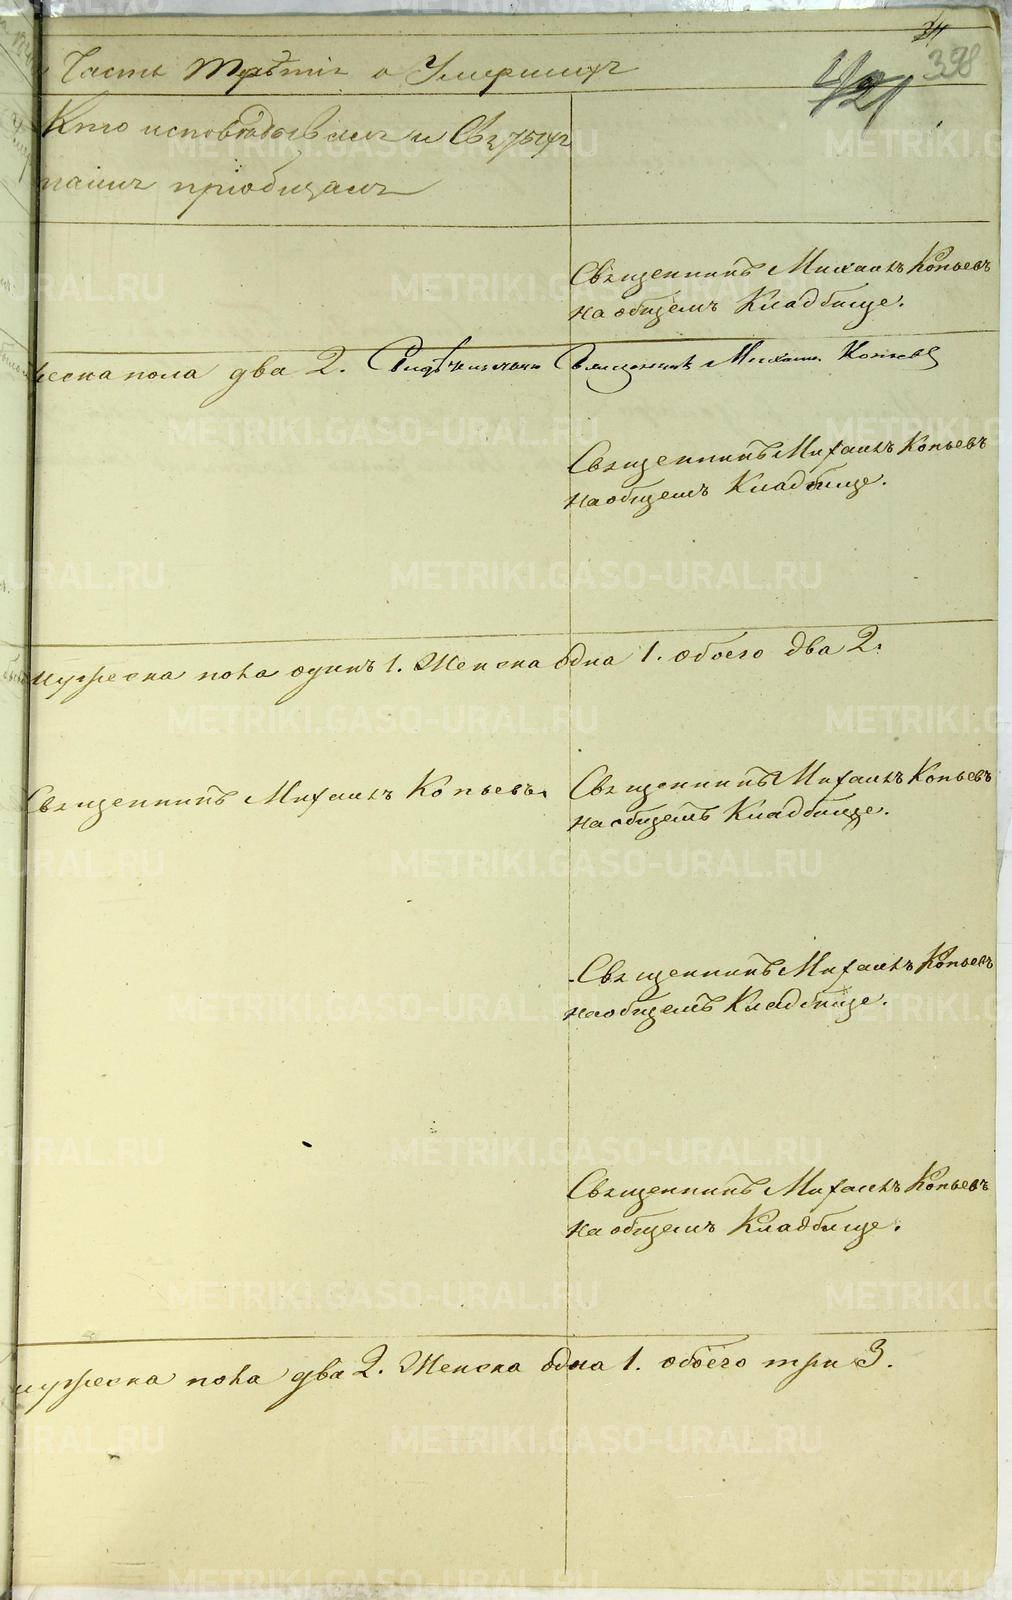 34
398
421
Часть Третiя о Умершихъ
Кто исповѣдывалъ и Св
таинъ приобщалъ
Священникъ Михаилъ Копьевъ
на общемъ Кладбище.
жеска пола два 2. Свидѣтельствую Священникъ Михаилъ Копьевъ
Священникъ Михаилъ Копьевъ
на общемъ Кладбище.
мужеска пола одинъ 1. Женска одна 1. обоего два 2.
Священникъ Михаилъ Копьевъ. Священникъ Михаилъ Копьевъ
на общемъ Кладбище.
Священникъ Михаилъ Копьевъ
на общемъ Кладбище.
Священникъ Михаилъ Копьевъ
на общемъ Кладбище.
мужеска пола два 2. Женска одна 1. обоего три 3.
METRIKI.GASO-URAL.RU